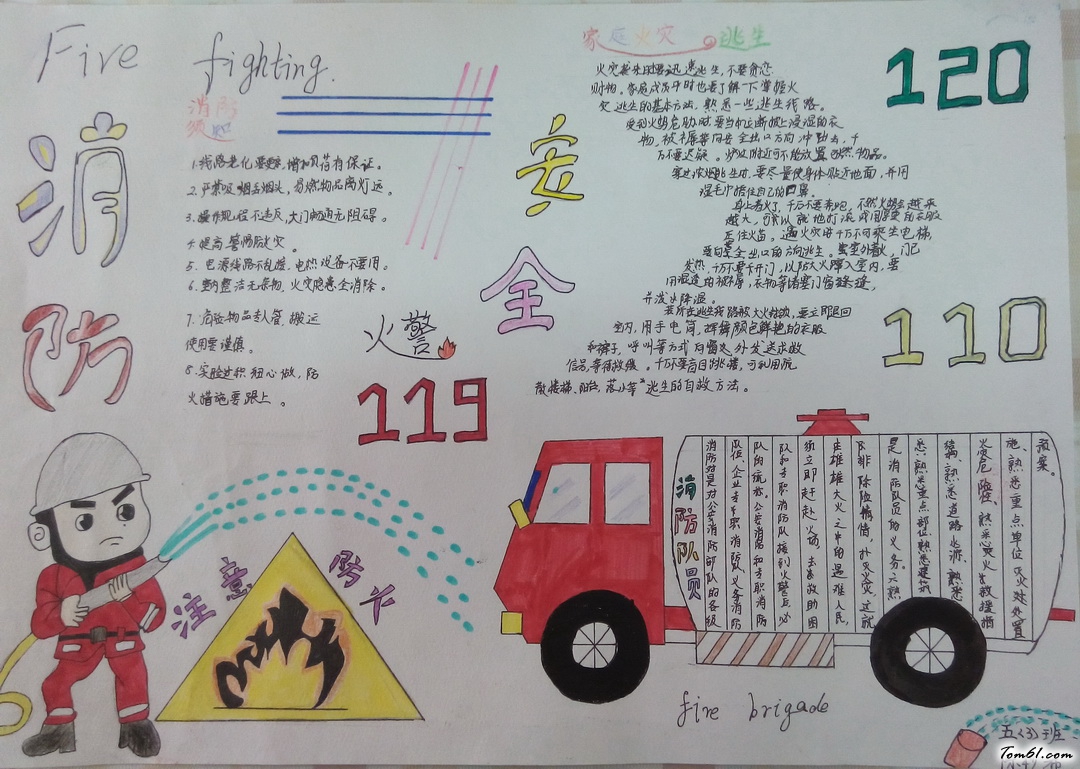 Fire fighting.
消防
安全
消防
须知
1.线路老化要更, 增加负荷有保证。
2.严禁吸烟丢烟头, 易燃物品离灯远。
3.操作规程不违反,大门畅通无阻碍。
4 提高警惕防火灾 。
5. 电源线路不乱接, 电热设备不要用。
6. 室内整洁无杂物, 火灾隐患全消除。
7. 危险物品专人管, 搬运
使用要谨慎。
8.实验过程细心做, 防
火措施要跟上 。
火警
119
家庭火灾 逃生
火灾袭来时要迅速逃生,不要贪恋
财物。家庭成员平时也要了解一下掌握火
灾逃生的基本方法, 熟悉一些逃生线路。
受到火势危胁时要当机立断披上浸湿的衣
物,被褥等向安全出口方向冲出去,千
万不要迟疑。炉灶附近不能放置可燃物品。
穿过浓烟逃生时,要尽量使身体贴近地面,并用
湿毛巾捂住自己的口鼻。
身上着火了,千万不要奔跑,不然火势会越来
越大,可以就地打滚或用厚重的衣服
压住火苗。遇火灾时千万不可乘坐电梯,
要向安全出口的方向逃生。室外着火,门已
发热,千万不要开门,以防大火蹿入室内,要
用浸湿的被褥,衣物等堵塞门窗缝,
并泼水降温。
若所在逃生线路被大火封锁,要立即退回
室内,用手电筒,挥舞颜色鲜艳的衣服
和裤子,呼叫等方式向窗外发送求救
信号,等待救援。千万不要盲目跳楼,可利用疏
散楼梯、阳台、落水等逃生的自救方法。
120
110
注意防火
消防队员
消防好是对公安消防部队的各级
队伍企业专职消防义务消防
队的统称。公安消防和专职消防
队和专职消防队接到火警后,必
须立即赶赴火场,去营救助困
在雄雄大火之中的遇难人民,
及排除险情,扑灭火灾,这就
是消防队员的义务。六熟
悉:熟悉重点部位,熟悉建筑
结构,熟悉道路水源,熟悉
火灾危险性,熟悉灭火救援措
施、熟悉重点单位灭火处置
预案。
fire brigade
五(3)班
Tom61.com